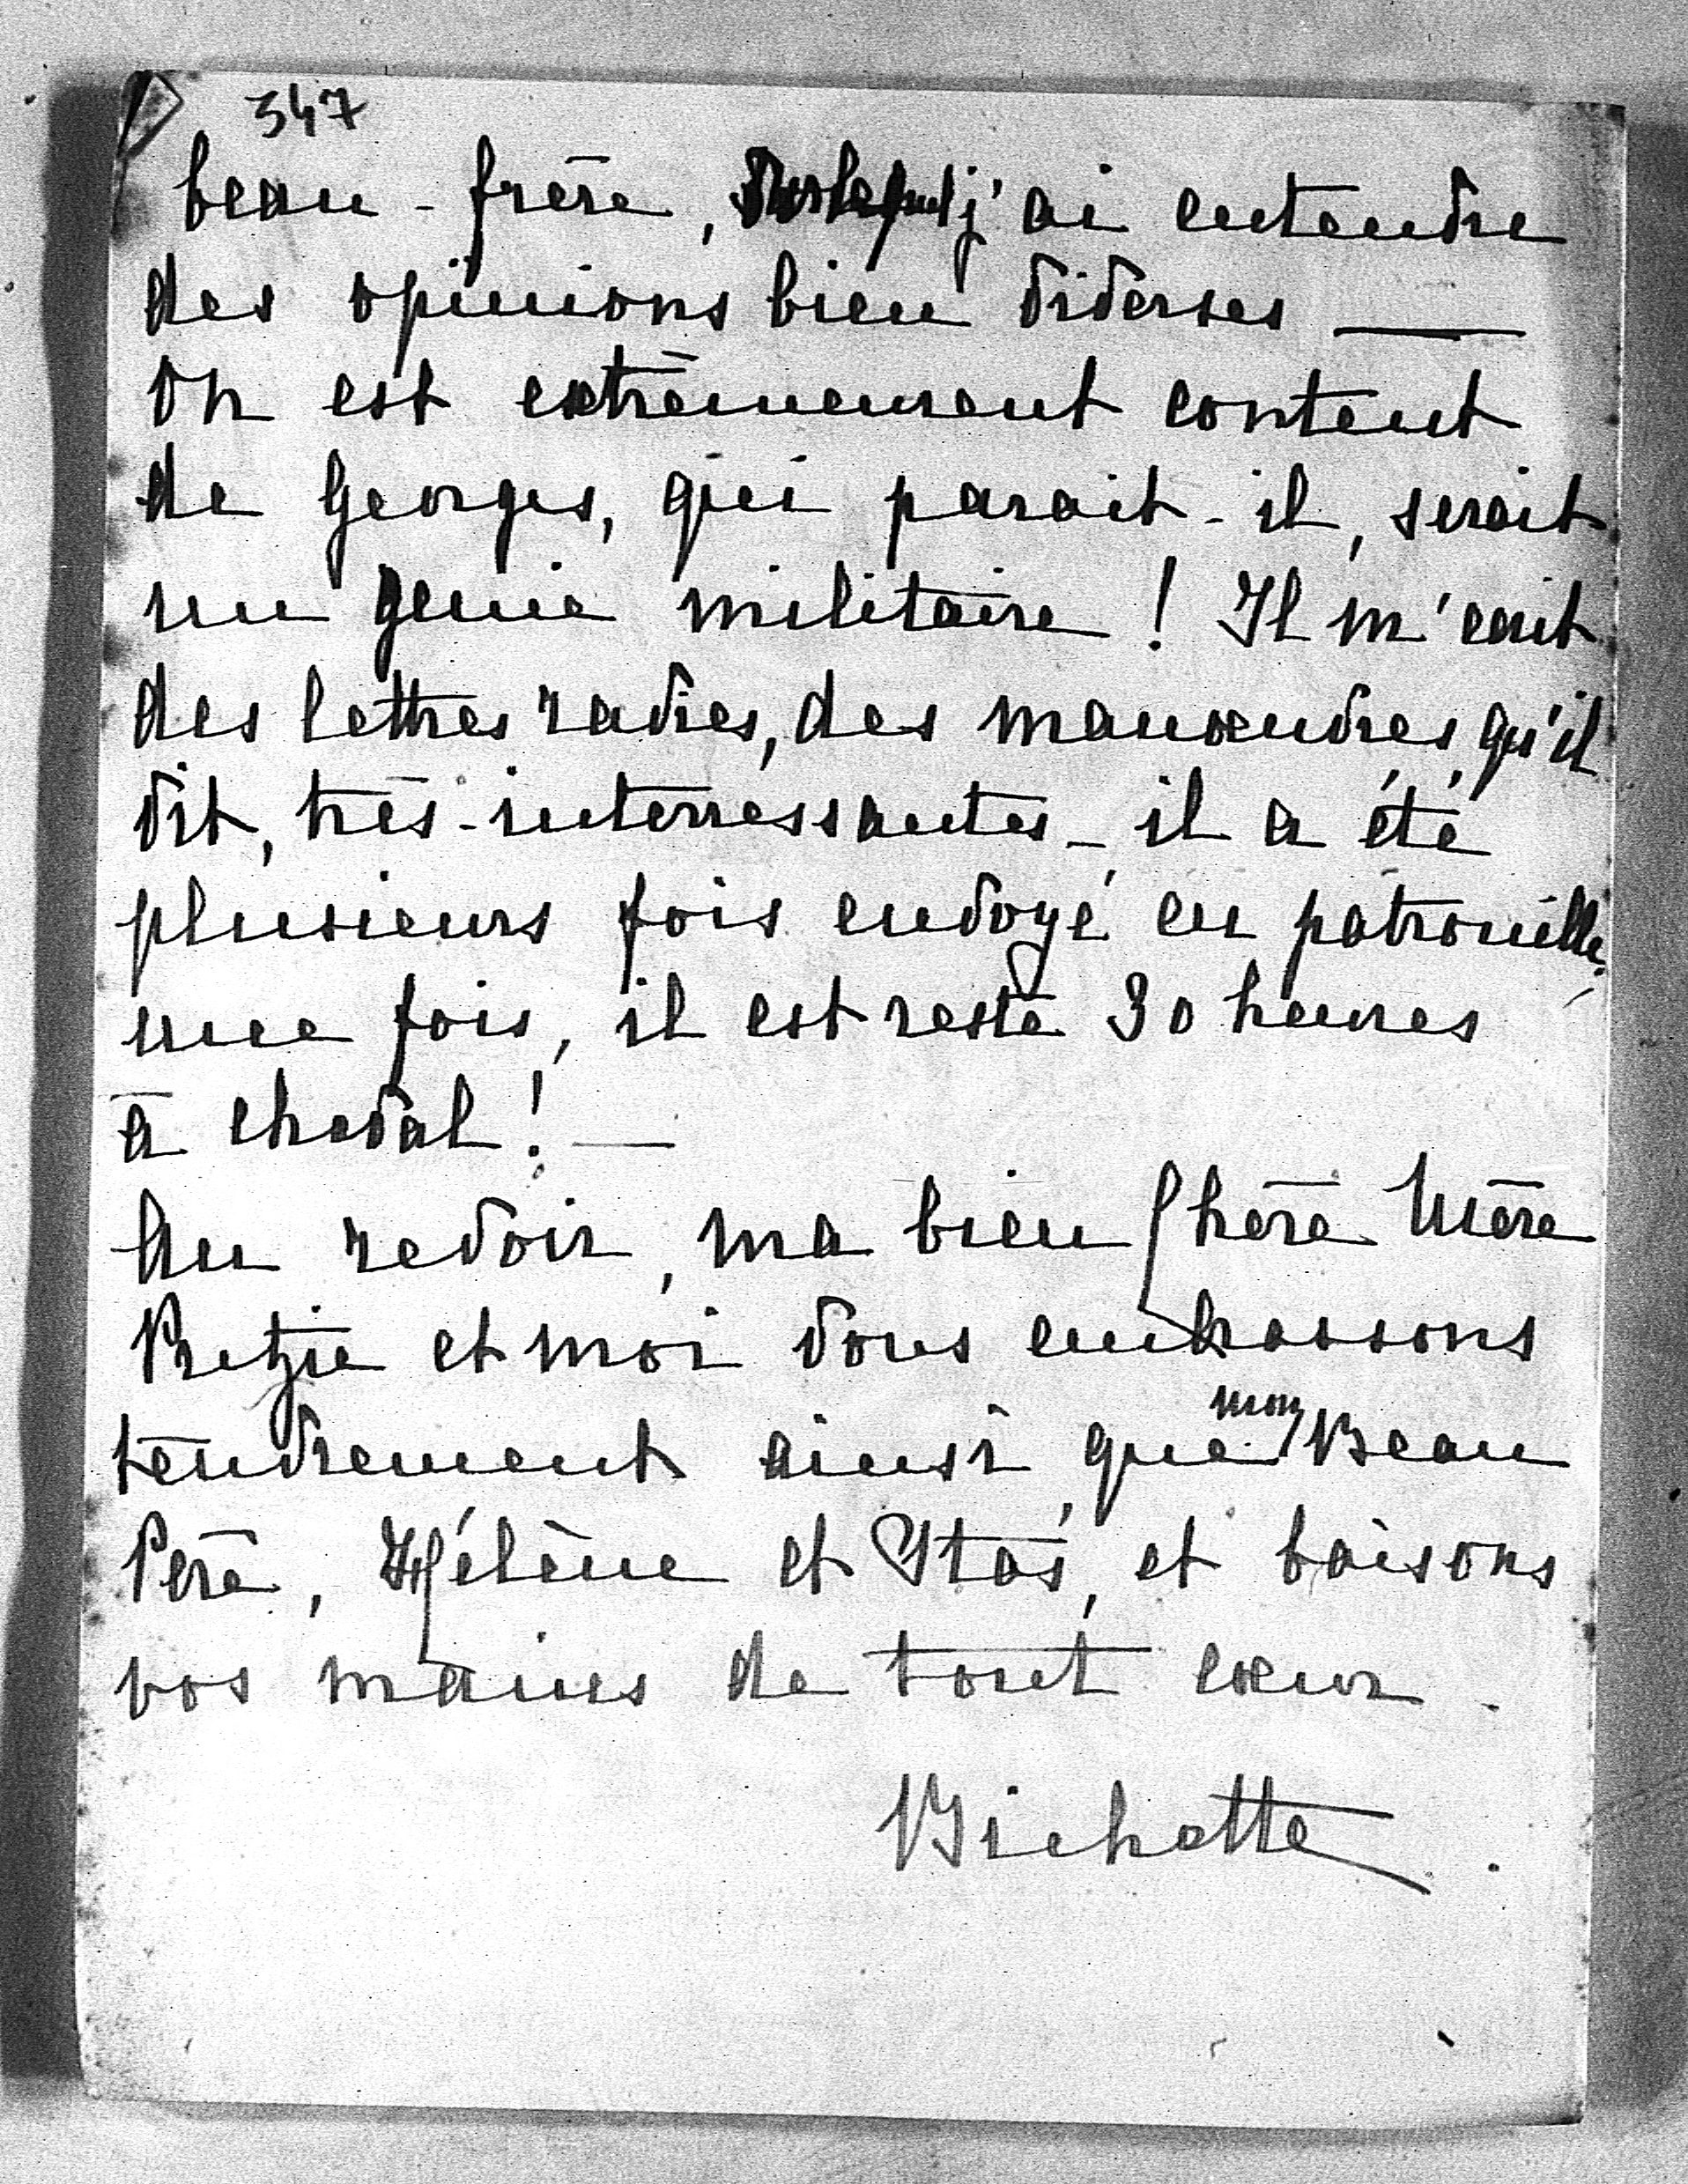 347
beau-frère, j'ai entendre
des opinions bien diverses —
On est extrèmement content
de Georges, qui parait-il, serait
un genie militaire ! Il m'ecrit
des lettres ravies, des manoeuvres, qu'il
dit, très-interressantes - il a été
plusieurs fois envoyé en patrouille,
une fois, il est resté 30 heures
à cheval ! —
Au revoir, ma bien Chère Mère
et moi vous embrassons
tendrement ainsi, que mon Beau
Père, Hélène et Stas, et baisons
vos mains de tout cœur.
Bichette.